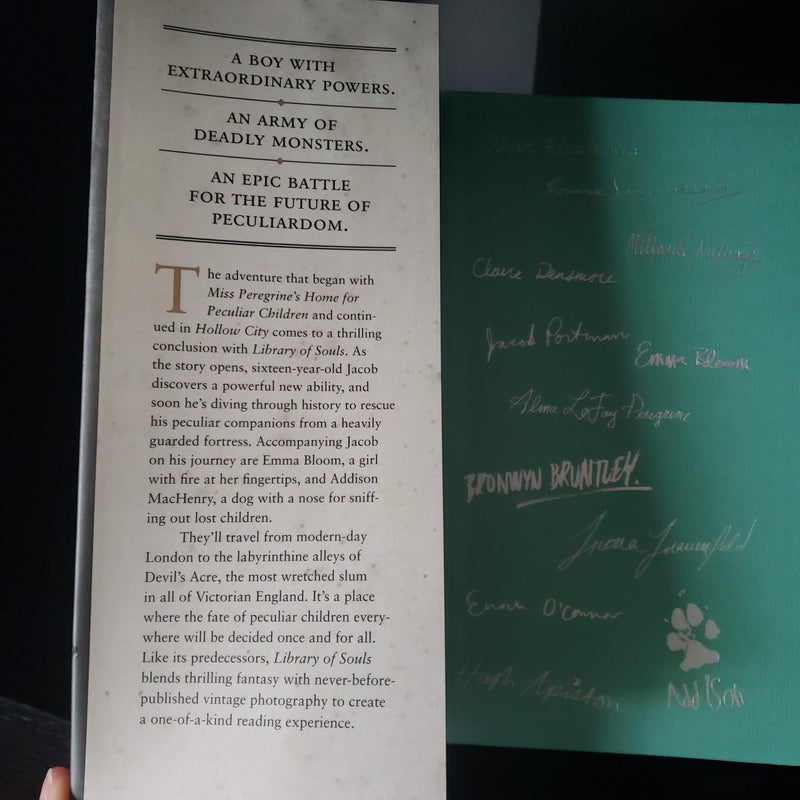 A BOY WITH
EXTRAORDINARY POWERS.
AN ARMY OF
DEADLY MONSTERS.
AN EPIC BATTLE
FOR THE FUTURE OF
PECULIARDOM.
The adventure that began with
Miss Peregrine's Home for
Peculiar Children and contin-
ued in Hollow City comes to a thrilling
conclusion with Library of Souls. As
the story opens, sixteen-year-old Jacob
discovers a powerful new ability, and
soon he's diving through history to rescue
his peculiar companions from a heavily
guarded fortress. Accompanying Jacob
on his journey are Emma Bloom, a girl
with fire at her fingertips, and Addison
MacHenry, a dog with a nose for sniff-
ing out lost children.
They'll travel from modern-day
London to the labyrinthine alleys of
Devil's Acre, the most wretched slum
in all of Victorian England. It's a place
where the fate of peculiar children every-
where will be decided once and for all.
Like its predecessors, Library of Souls
blends thrilling fantasy with never-before-
published vintage photography to create
a one-of-a-kind reading experience.
Olive
Horace
Millard Nullings
Claire Densmore
Jacob Portman
Emma Bloom
Alma LeFay Peregrine
BRONWYN BRUNTLEY.
Fiona Frauenfeld
Enoch O'Connor
Hugh Apiston
AddISon